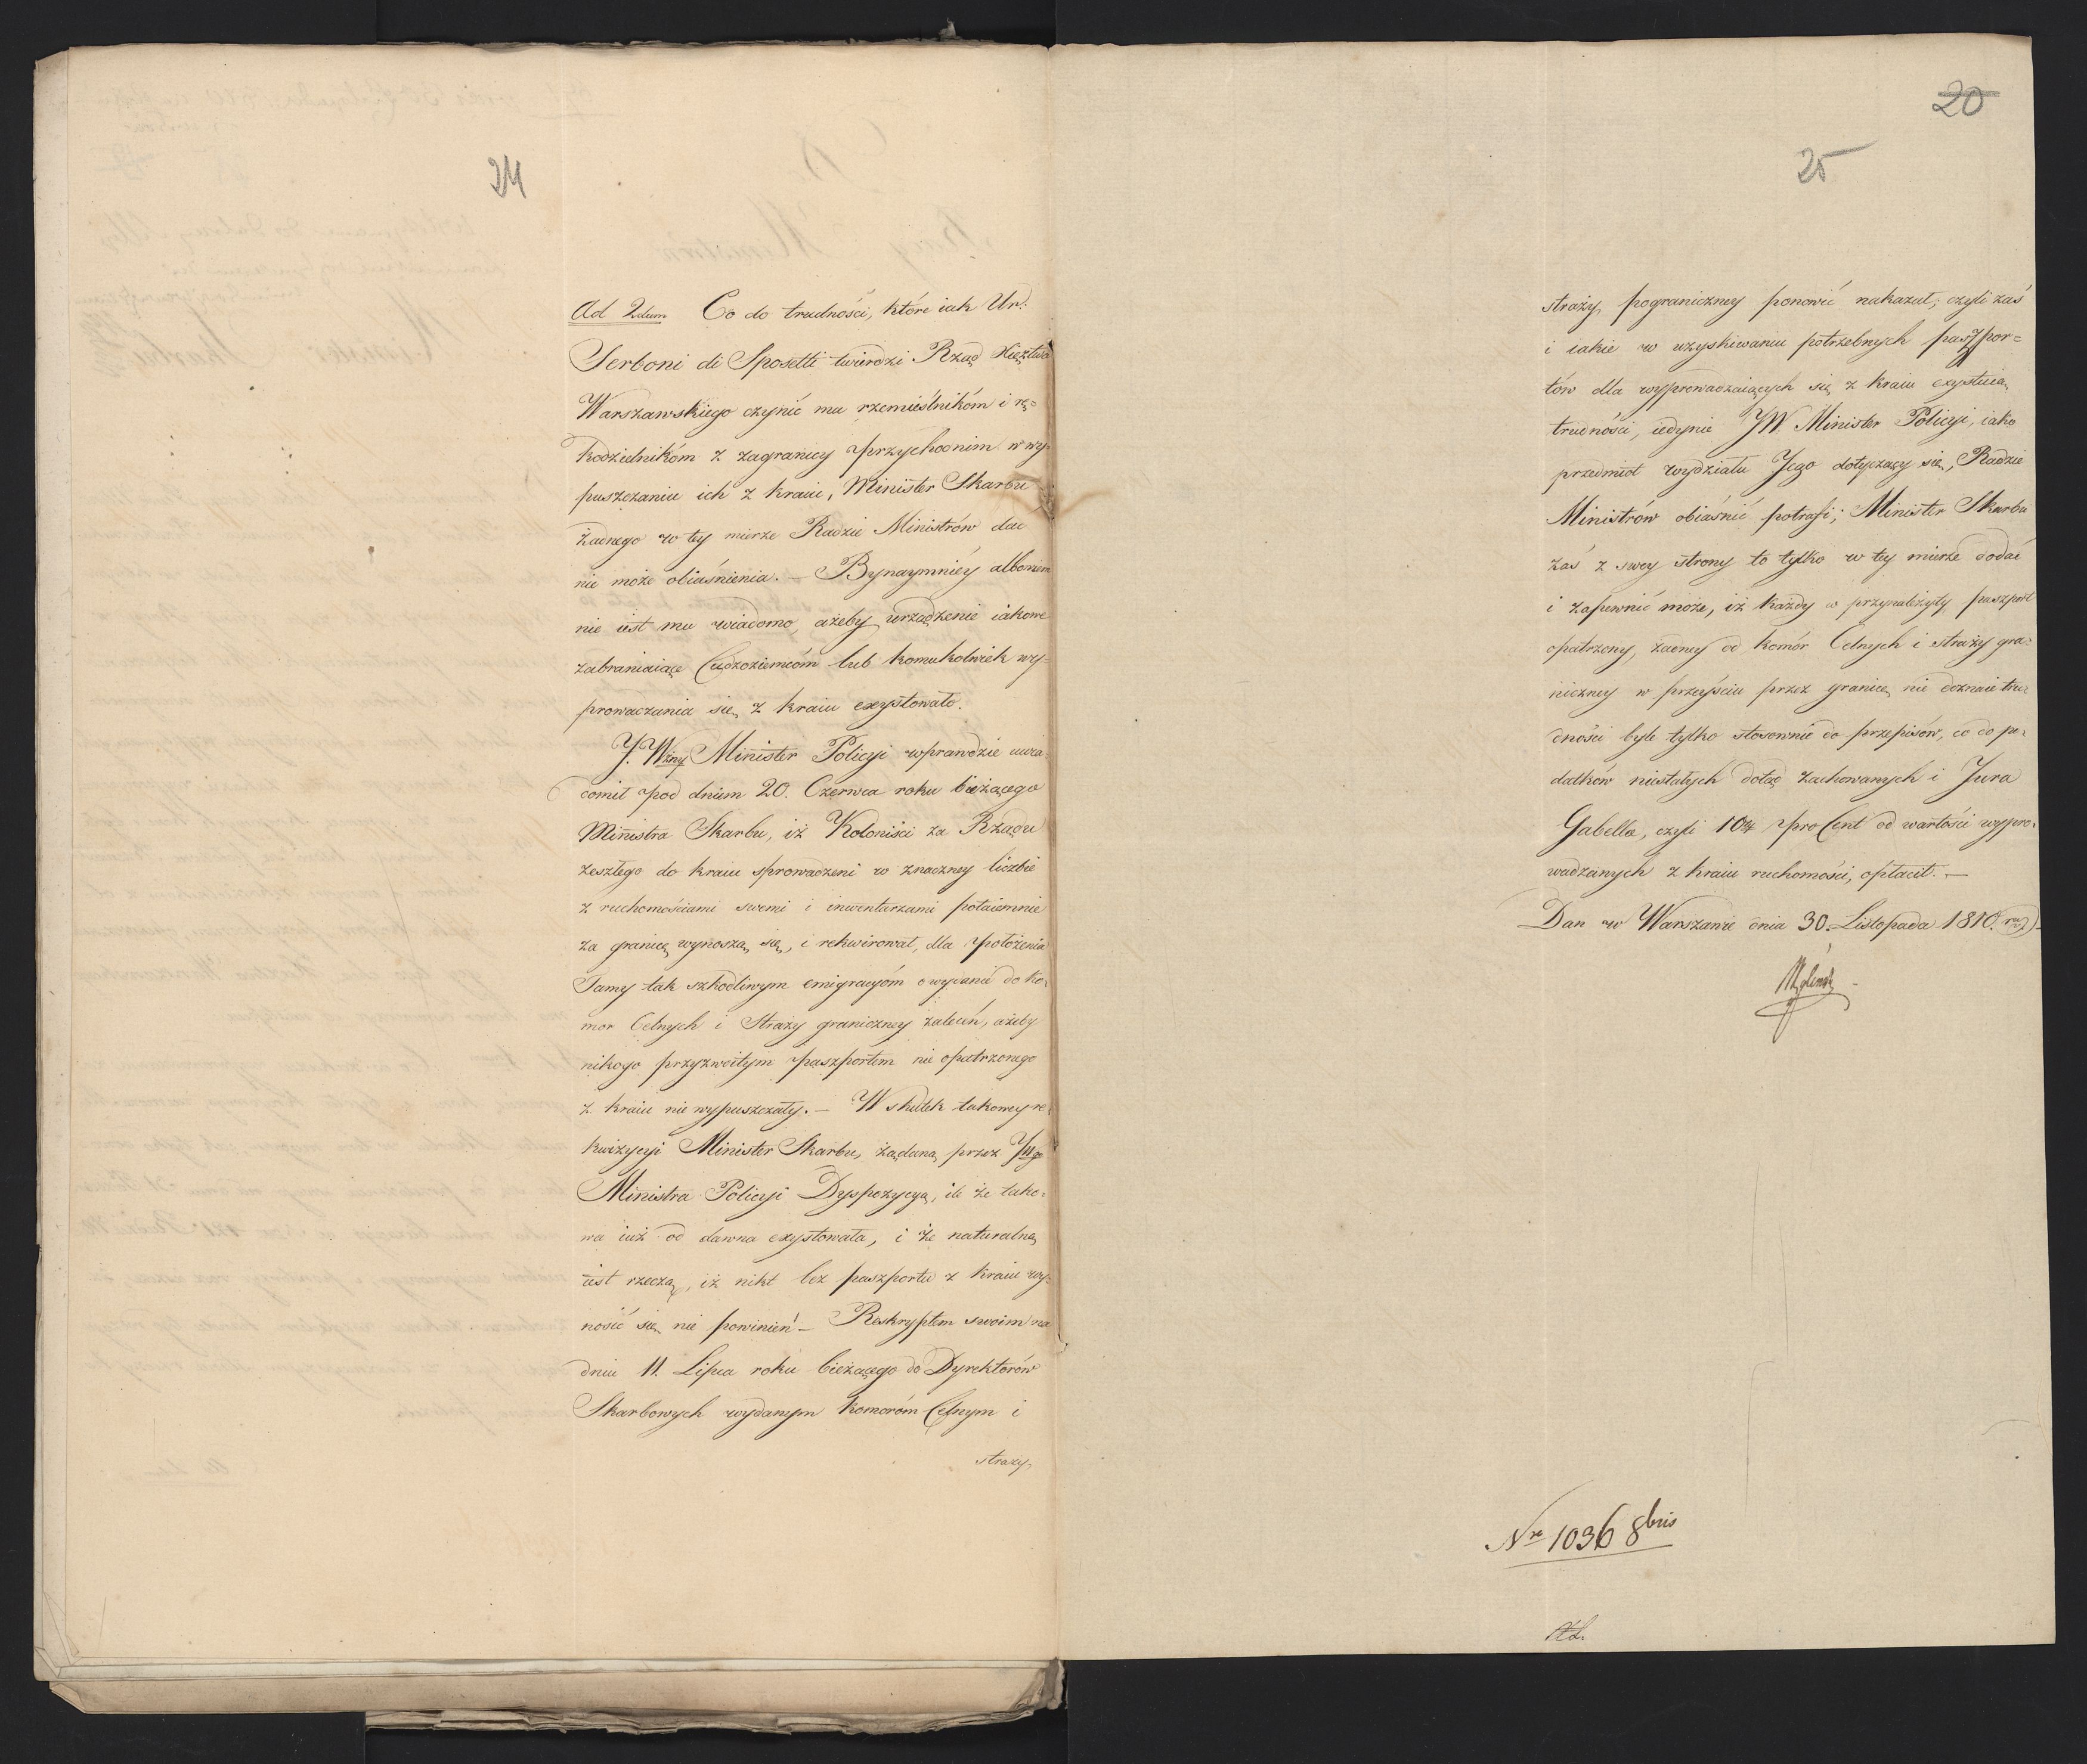 24
Ad 2dum Co do trudności, które iak Ur:
Serboni di Sposetti twierdzi Rząd Xięztwa
Warszawskiego czynić ma rzemieślnikóm i rę=
kodzielnikóm z zagranicy przychodnim w wy=
puszczaniu ich z kraiu, Minister Skarbu
żadnego w tey mierze Radzie Ministrów dać
nie może obiaśnienia. – Bynaymniéy albowiem
nie iest mu wiadomo, ażeby urządzenie iakowe
zabraniaiące Cudzoziemcóm lub komukolwiek wy=
prowadzania się z kraiu exystowało.
J. Wżny Minister Policyi wprawdzie uwia=
domił pod dniem 20. Czerwca roku bieżącego
Ministra Skarbu, iż Koloniści za Rządu
zeszłego do kraiu sprowadzeni w znaczney liczbie
z ruchomościami swemi i inwentarzami potaiemnie
za granicę wynoszą się, i rekwirował, dla położenia
Tamy tak szkodliwym emigracyóm o wydanie do ko=
mor Celnych i Straży graniczney zaleceń, ażeby
nikogo przyzwoitym paszportem nie opatrzonego
z kraiu nie wypuszczały. – W skutek takowey re=
kwizycyi Minister Skarbu, żądaną przez JWgo
Ministra Policyi Dyspozycyą, ile że tako=
wa iuż od dawna exystowała, i że naturalną
iest rzeczą, iż nikt bez paszportu z kraiu wy=
nosić się nie powinien – Reskryptem swoim na
dniu 11. Lipca roku bieżącego do Dyrektorów
Skarbowych wydanym komoróm Celnym i
straży
20
25
straży pograniczney ponowić nakazał; czyli zaś
i iakie w uzyskiwaniu potrzebnych paszpor=
tów dla wyprowadzaiących się z kraiu exystuią
trudności, iedynie JW. Minister Policyi, iako
przedmiot wydziału Jego dotyczący się, Radzie
Ministrów obiaśnić potrafi; Minister Skarbu
zaś z swey strony to tylko w tey mierze dodać
i zapewnić może, iż każdy w przynależyty paszport
opatrzony, żadney od komór Celnych i straży gra=
niczney w przeyściu przez granicę nie doznaie tru=
dności byle tylko stosownie do przepisów, co do po=
datków niestałych dotąd zachowanych i Jura
Gabella, czyli 10ty pro Cent od wartości wypro=
wadzanych z kraiu ruchomości, opłacił. –
Dan w Warszawie dnia 30. Listopada 1810. r.
Węgleński
Nro 1036 8bris